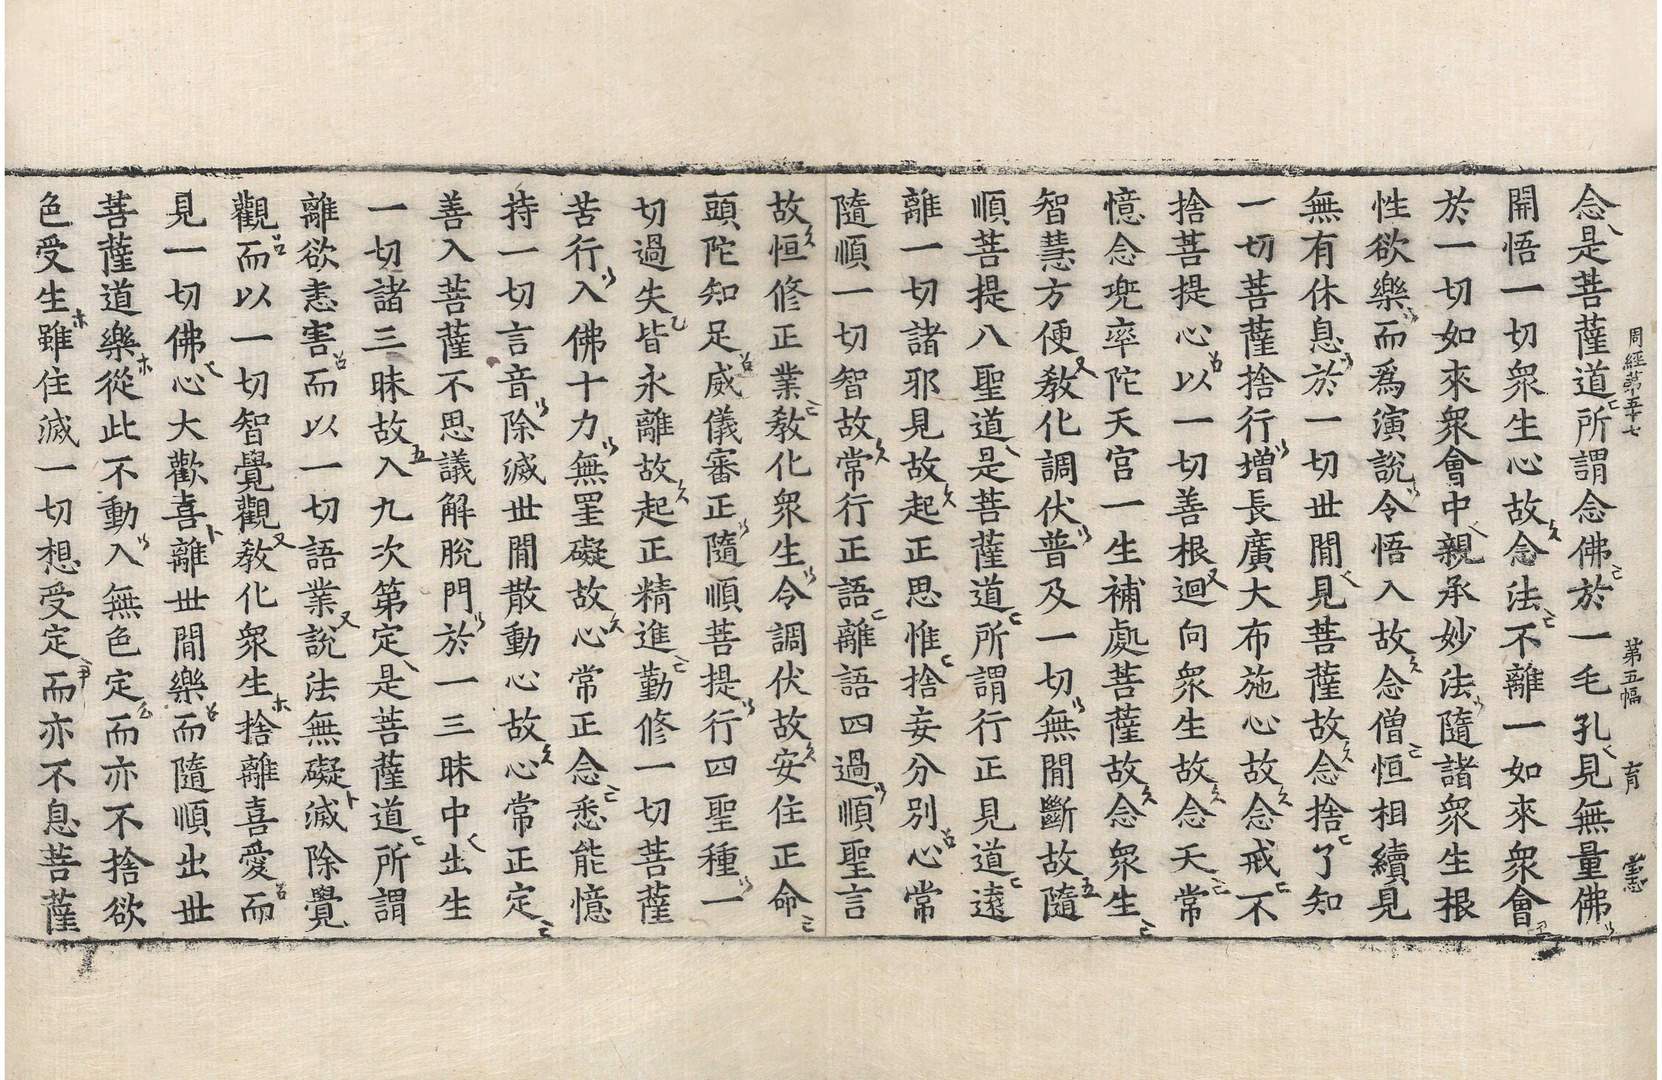 周經第五十七 第五幅 育 憲
念是菩薩道所謂念佛於一毛孔見無量佛
開悟一切眾生心故念法不離一如來眾會
於一切如來眾會中親承妙法隨諸眾生根
性欲樂而爲演說令悟入故念僧恒相續見
無有休息於一切世閒見菩薩故念捨了知
一切菩薩捨行增長廣大布施心故念戒不
捨菩提心以一切善根迴向眾生故念天常
憶念兜率陀天宮一生補處菩薩故念眾生
智慧方便教化調伏普及一切無閒斷故隨
順菩提八聖道是菩薩道所謂行正見道遠
離一切諸邪見故起正思惟捨妄分別心常
隨順一切智故常行正語離語四過順聖言
故恒修正業教化眾生令調伏故安住正命
頭陀知足威儀審正隨順菩提行四聖種一
切過失皆永離故起正精進勤修一切菩薩
苦行入佛十力無罣礙故心常正念悉能憶
持一切言音除滅世閒散動心故心常正定
善入菩薩不思議解脫門於一三昧中出生
一切諸三昧故入九次第定是菩薩道所謂
離欲恚害而以一切語業說法無礙滅除覺
觀而以一切智覺觀教化眾生捨離喜愛而
見一切佛心大歡喜離世閒樂而隨順出世
菩薩道樂從此不動入無色定而亦不捨欲
色受生雖住滅一切想受定而亦不息菩薩